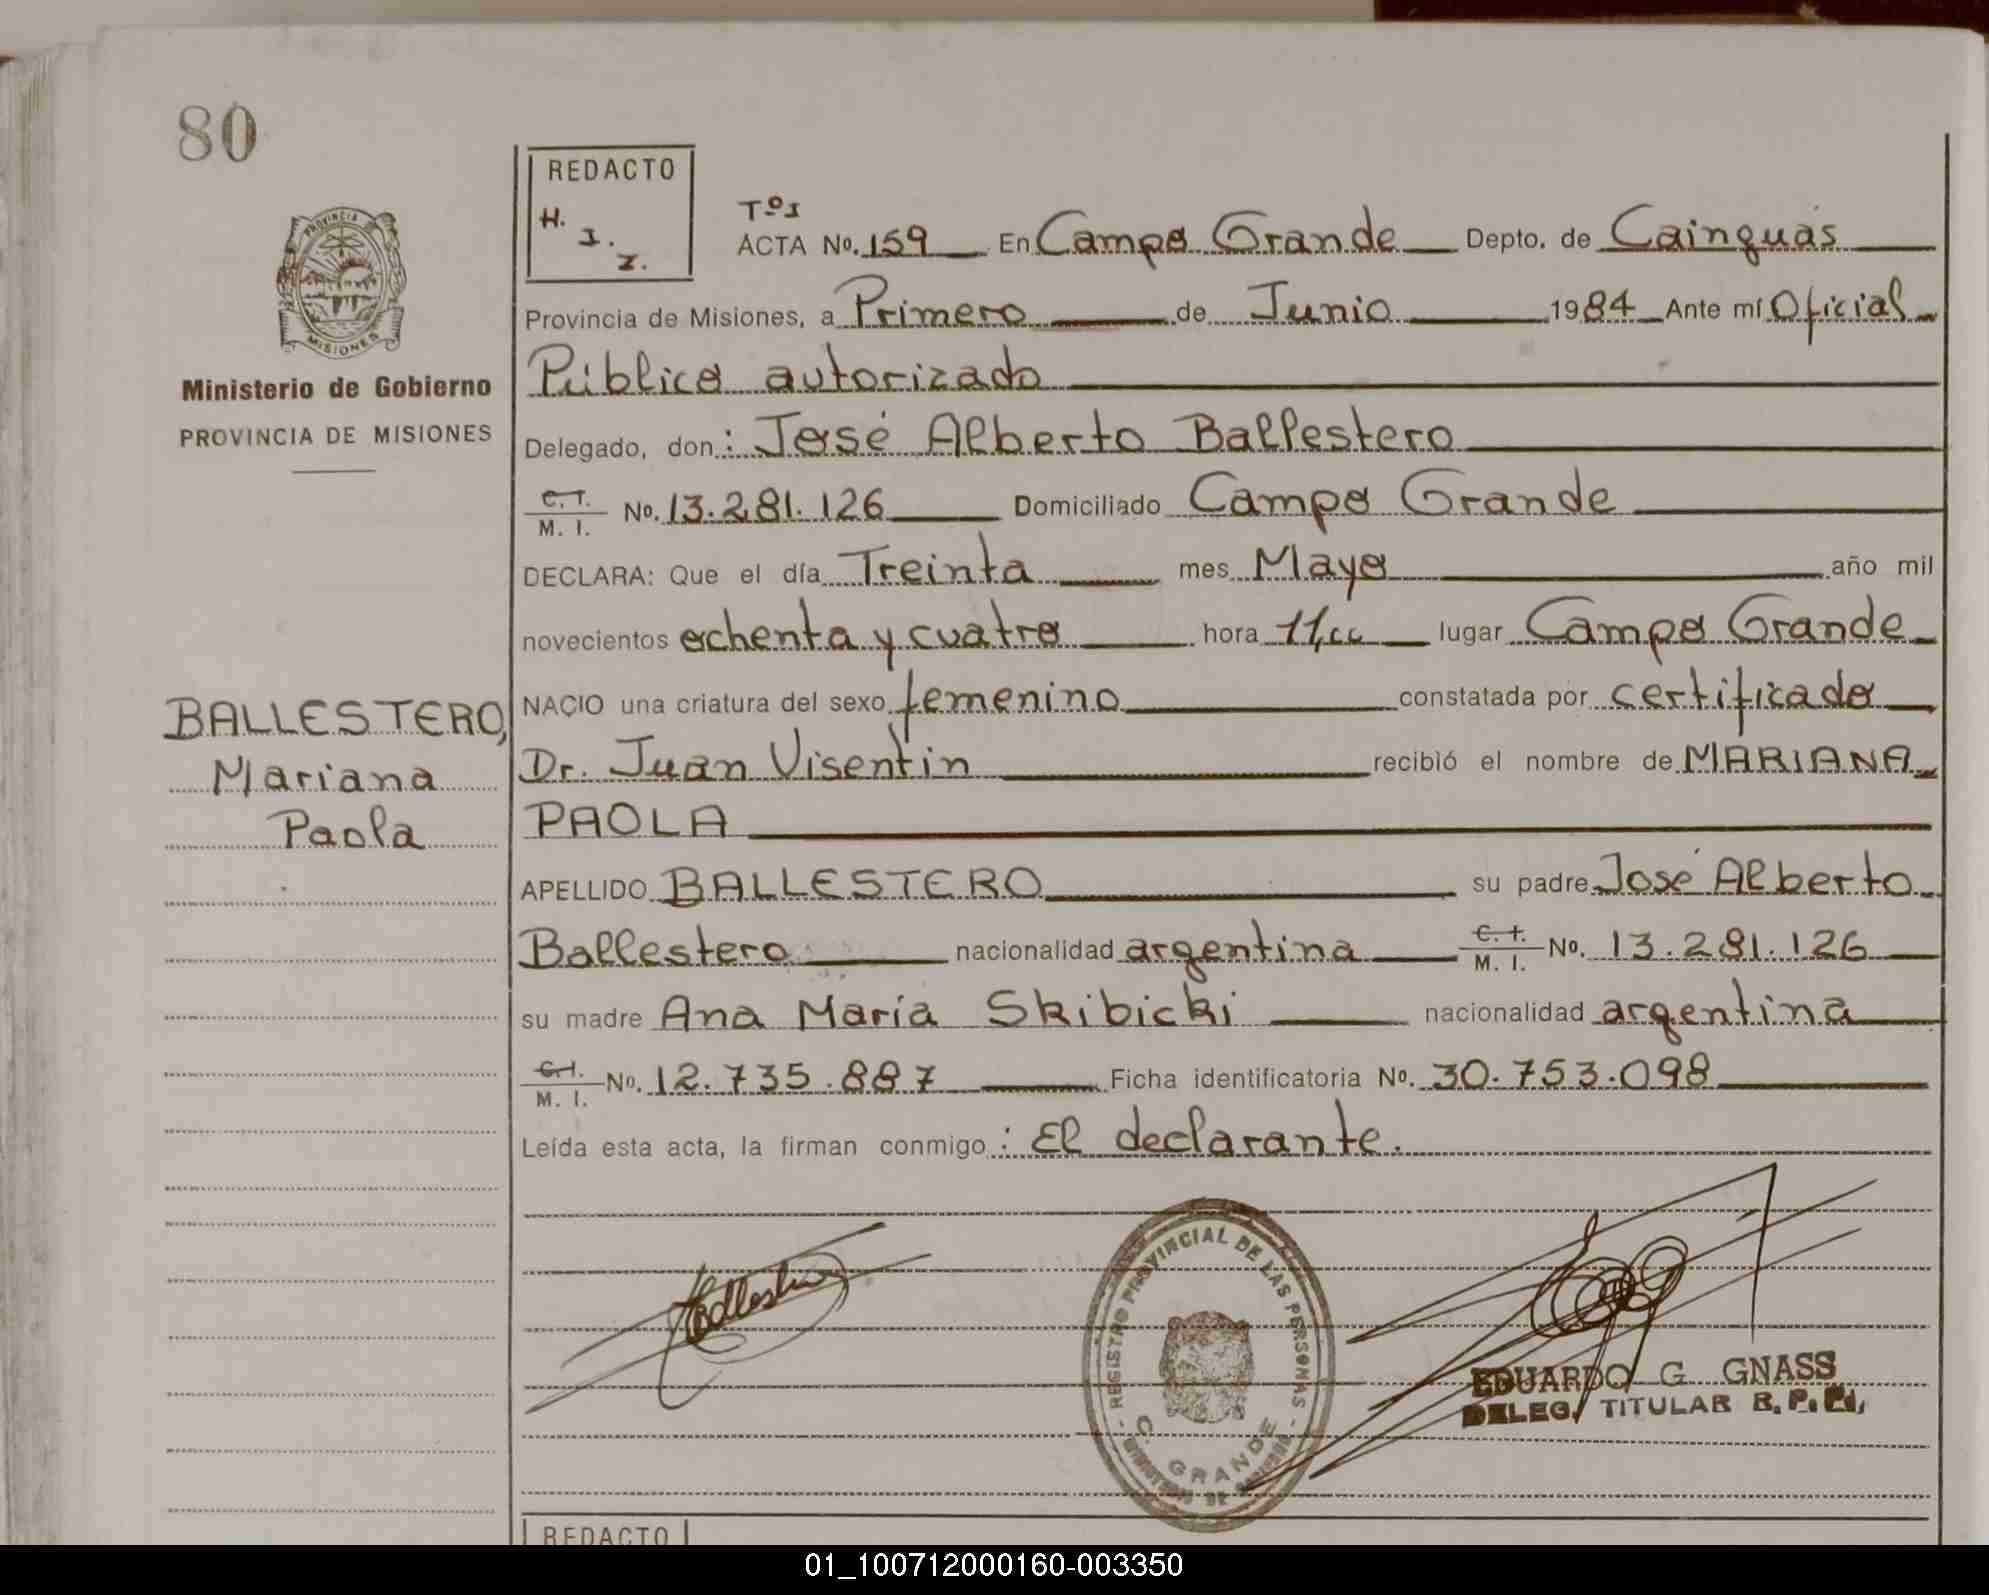 80
REDACTO
H. I. Z.
PROVINCIA
MISIONES
Ministerio de Gobierno
PROVINCIA DE MISIONES
BALLESTERO,
Mariana
Paola
Tº I
ACTA Nº. 159 En Campo Grande Depto. de Cainguás
Provincia de Misiones, a Primero de Junio 1984 Ante mí Oficial
Público autorizado
Delegado, don: José Alberto Ballestero
C. I. M. I. Nº. 13.281.126 Domiciliado Campo Grande
DECLARA: Que el día Treinta mes Mayo año mil
novecientos ochenta y cuatro hora 11,00 lugar Campo Grande
NACIO una criatura del sexo femenino constatada por certificado
Dr. Juan Visentin recibió el nombre de MARIANA
PAOLA
APELLIDO BALLESTERO su padre José Alberto
Ballestero nacionalidad argentina C. I. M. I. Nº. 13.281.126
su madre Ana María Skibicki nacionalidad argentina
C. I. M. I. Nº. 12.735.887 Ficha identificatoria Nº. 30.753.098
Leída esta acta, la firman conmigo: El declarante.
REGISTRO PROVINCIAL DE LAS PERSONAS
C. GRANDE
EDUARDO G. GNASS
DELEG. TITULAR R. P. P.
REDACTO
01_100712000160-003350